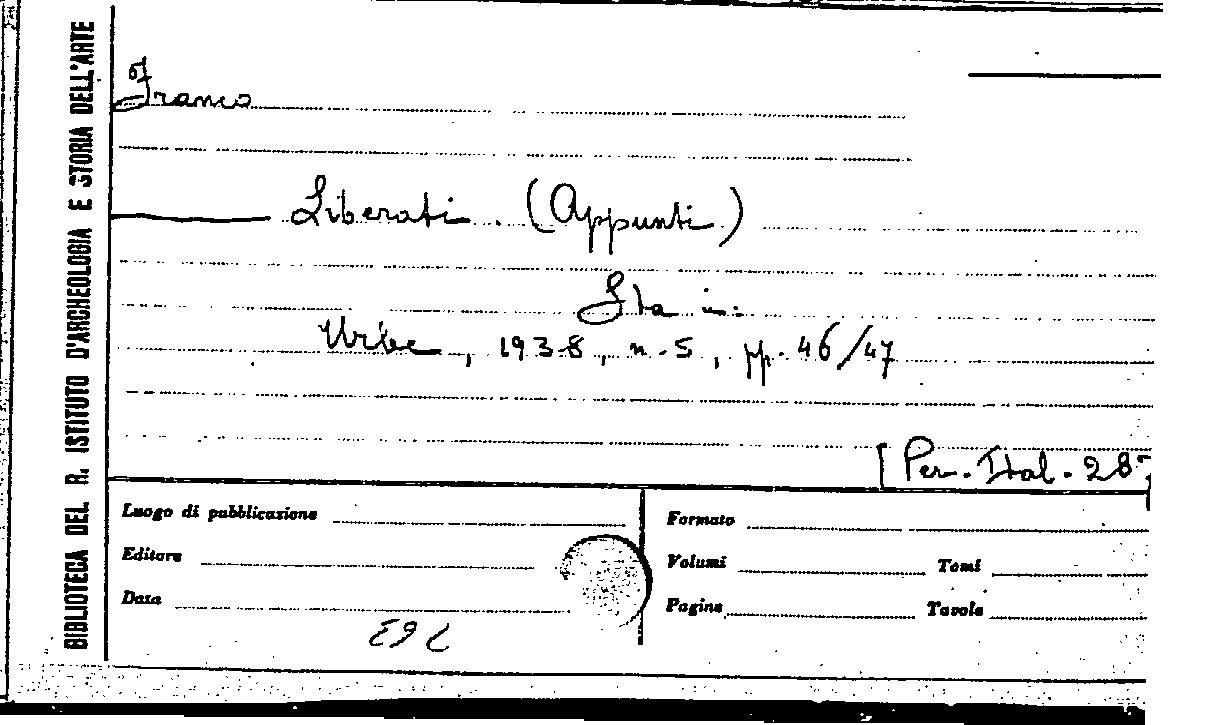 BIBLIOTECA DEL R. ISTITUTO D'ARCHEOLOGIA E STORIA DELL'ARTE
Franco
Liberati. (Appunti)
Sta in:
Urbe, 1938, n. 5, pp. 46/47
[Per. Ital. 28
Luogo di pubblicazione
Formato
Editore
Volumi Tomi
Data
Pagine Tavole